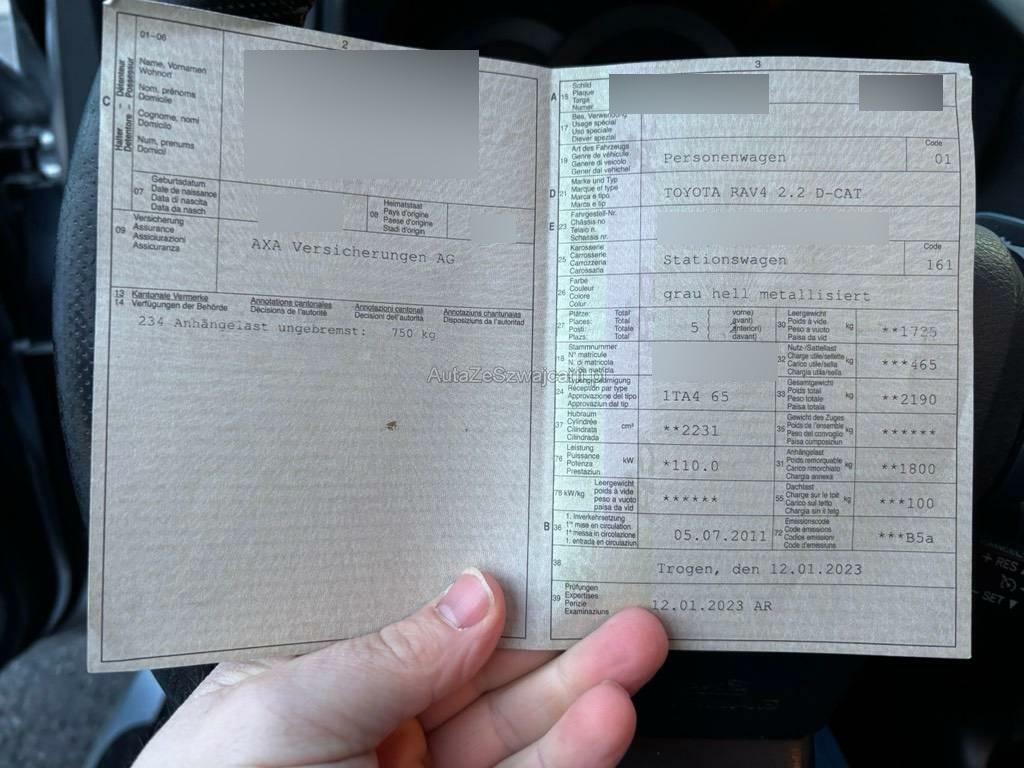 2
01-06
C
Halter Détenteur
Detentore Possessur
Name, Vornamen
Wohnort
Nom, prénoms
Domicile
Cognome, nomi
Domicilio
Num, prenums
Domicil
07
Geburtsdatum
Date de naissance
Data di nascita
Data da nasch
08
Heimatstaat
Pays d'origine
Paese d'origine
Stadi d'origin
09
Versicherung
Assurance
Assicurazioni
Assicuranza
AXA Versicherungen AG
13 Kantonale Vermerke Annotations cantonales Annotazioni cantonali Annotaziuns chantunalas
14 Verfügungen der Behörde Décisions de l'autorité Decisioni dell'autorità Disposiziuns da l'autoritad
234 Anhängelast ungebremst: 750 kg
AutaZeSzwajcarii.pl
3
A 15
Schild
Plaque
Targa
Numer
17
Bes. Verwendung
Usage spécial
Uso speciale
Diever spezial
19
Art des Fahrzeugs
Genre de véhicule
Genere di veicolo
Gener dal vehichel
Personenwagen
Code
01
D 21
Marke und Typ
Marque et type
Marca e tipo
Marca e tip
TOYOTA RAV4 2.2 D-CAT
E 23
Fahrgestell-Nr.
Châssis no
Telaio n.
Schassis nr.
25
Karosserie
Carrosserie
Carrozzeria
Carossaria
Stationswagen
Code
161
26
Farbe
Couleur
Colore
Colur
grau hell metallisiert
27
Plätze: Total
Places: Total
Posti: Totale
Plazs: Total
5
vorne)
avant)
anteriori)
davant)
30
Leergewicht
Poids à vide
Peso a vuoto
Paisa da vid
kg
**1725
18
Stammnummer
N° matricule
N. di matricola
32
Nutz-/Sattellast
Charge utile/sellette
Carico utile/sella
Chargia utila/sella
kg
***465
24
Typengenehmigung
Réception par type
Approvazione del tipo
Approvaziun dal tip
1TA4 65
33
Gesamtgewicht
Poids total
Peso totale
Paisa totala
kg
**2190
37
Hubraum
Cylindrée
Cilindrata
Cilindrada
cm³
**2231
35
Gewicht des Zuges
Poids de l'ensemble
Peso del convoglio
Paisa cumposiziun
kg
******
76
Leistung
Puissance
Potenza
Prestaziun
kW
*110.0
31
Anhängelast
Poids remorquable
Carico rimorchiato
Chargia annexa
kg
**1800
78 kW/kg
Leergewicht
poids à vide
peso a vuoto
paisa da vid
******
55
Dachlast
Charge sur le toit
Carico sul tetto
Chargia sin il tetg
kg
***100
B 36
1. Inverkehrsetzung
1re mise en circulation
1a messa in circolazione
1. entrada en circulaziun
05.07.2011
72
Emissionscode
Code émissions
Codice emissioni
Code d'emissiuns
***B5a
38
Trogen, den 12.01.2023
39
Prüfungen
Expertises
Perizie
Examinaziuns
12.01.2023 AR
+ RES
- SET ▼